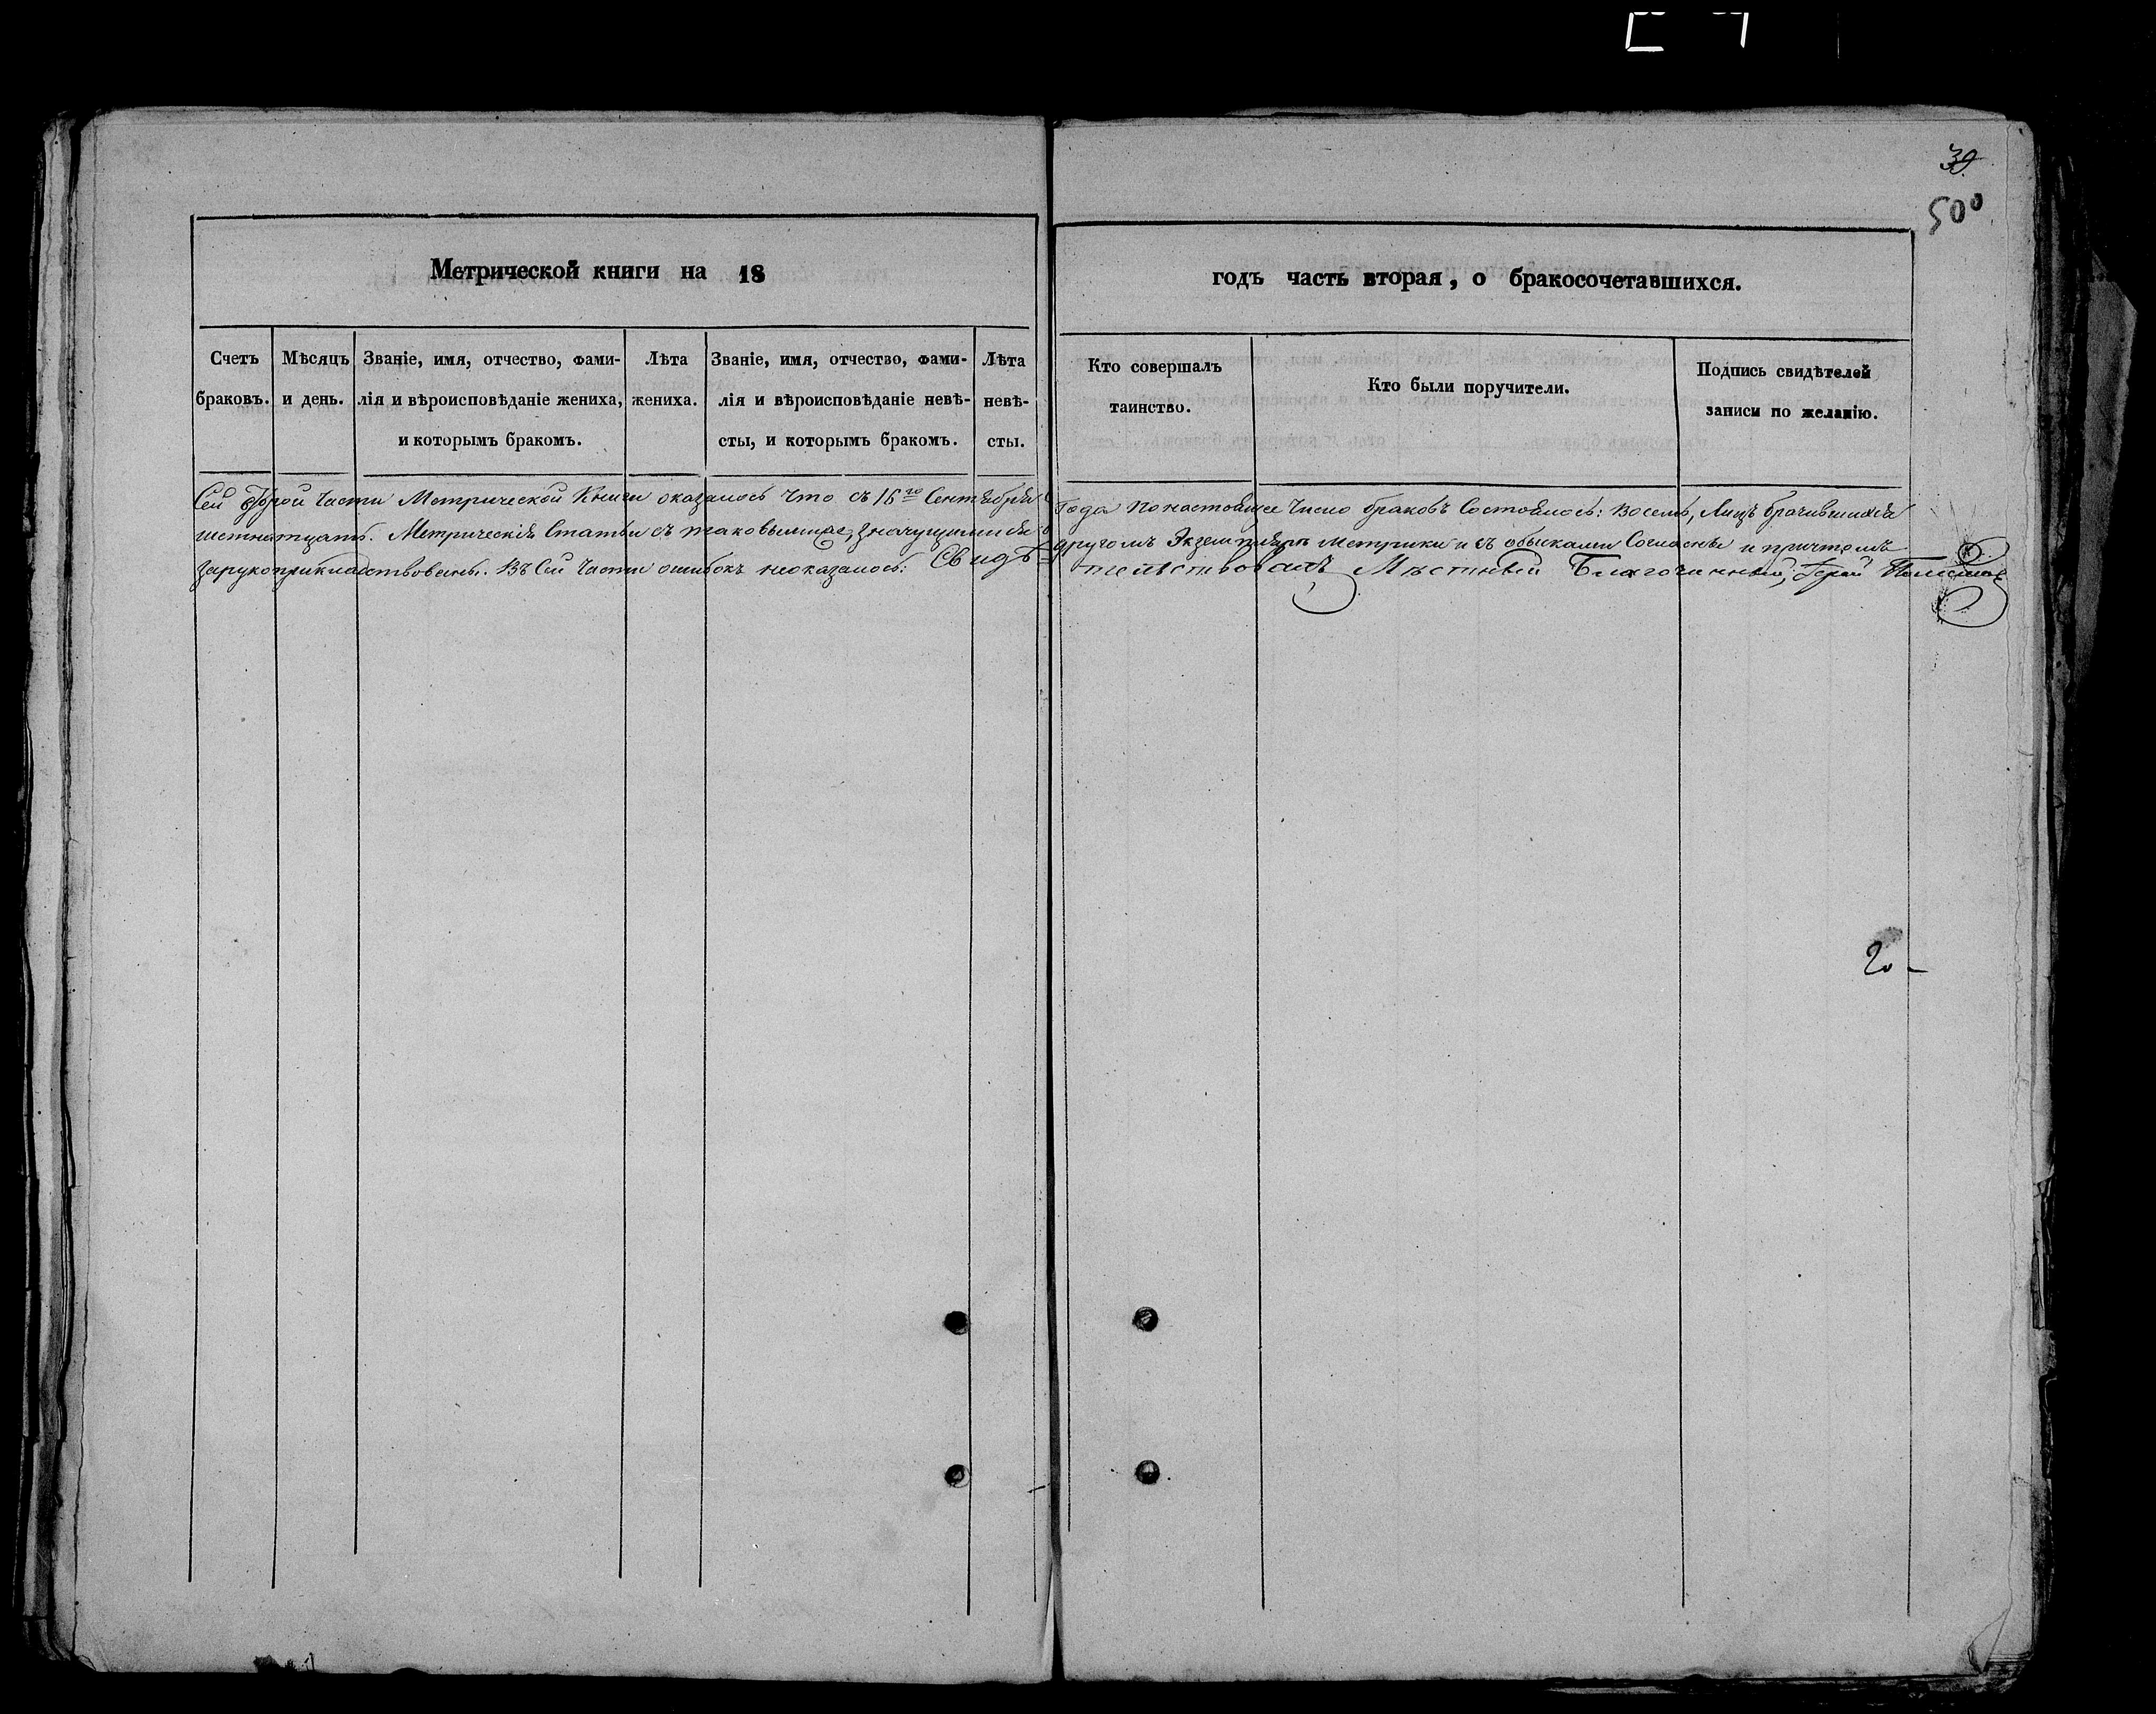 30.
500
Метрической книги на 18 годъ часть вторая, о бракосочетавшихся.
Счетъ браковъ.
Мѣсяцъ и день.
Званіе, имя, отчество, фами-
лія и вѣроисповѣданіе жениха,
и которымъ бракомъ.
Лѣта жениха.
Званіе, имя, отчество, фами-
лія и вѣроисповѣданіе невѣ-
сты, и которымъ бракомъ.
Лѣта
невѣ-
сты.
Кто совершалъ
таинство.
Кто были поручители.
Подпись свидѣтелей
записи по желанію.
Сей Второй Части Метрической Книги оказалось что съ 16го Сентября Года По настоящее Число браковъ Состоялось: Восемь, Лицъ брачившихся
шестнатцать. Метрическія Статьи съ таковымиже, значущимися другомъ Экземплярѣ метрики и съ обысками Согласны и причтомъ
зарукоприкладствованы. Въ Сей Части ошибокъ неоказалось: Свидѣ-
тельствовалъ Мѣстный Благочинный, Іерей
20 -